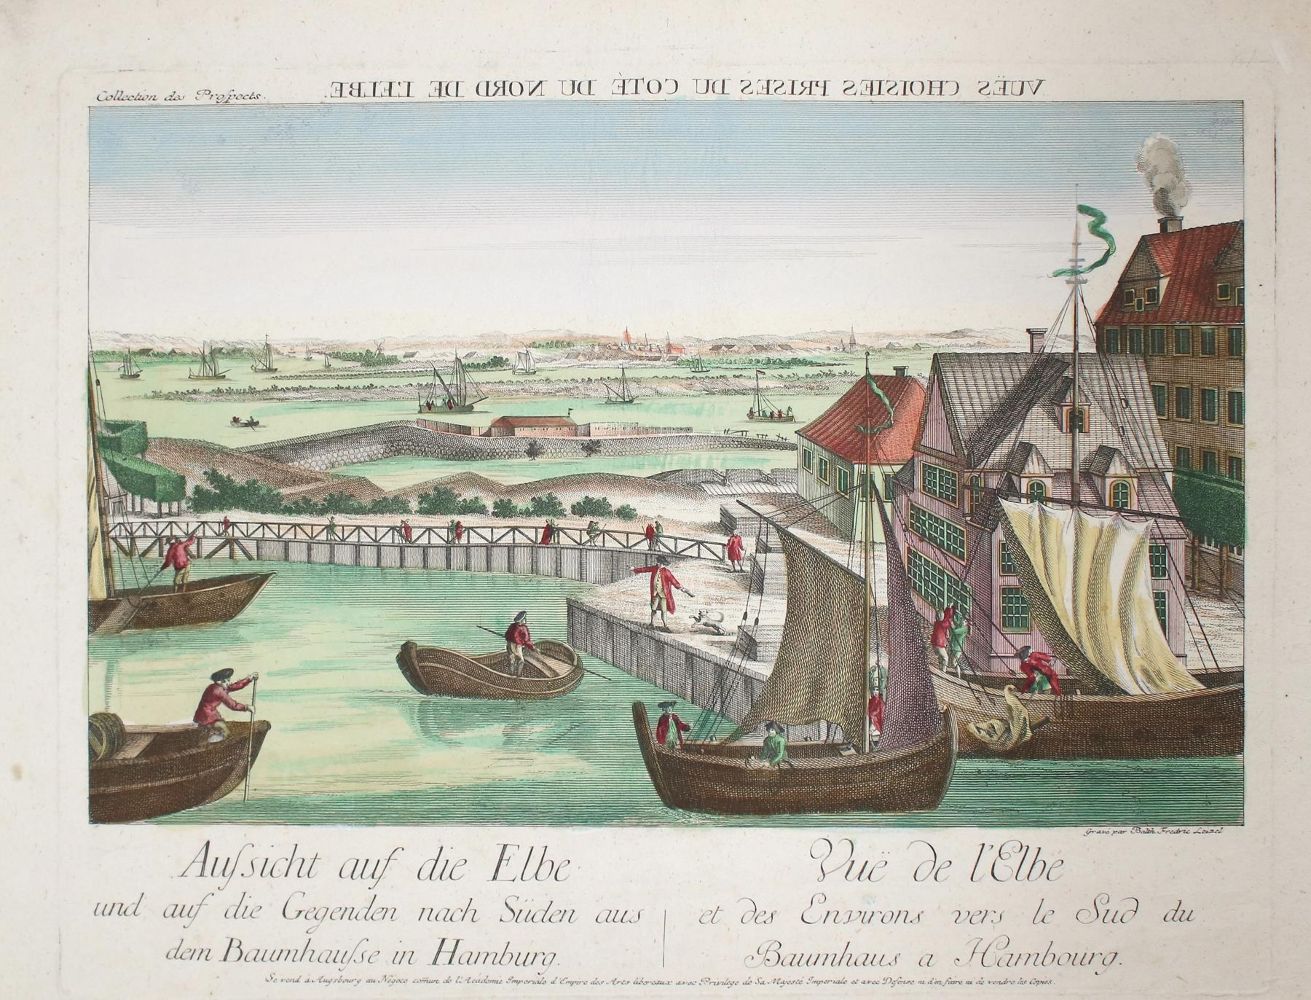 Collection des Prospects.
VUËS CHOISIES PRISES DU COTÉ DU NORD DE L'ELBE.
Gravé par Balth. Fredric Leizel
Aussicht auf die Elbe
und auf die Gegenden nach Süden aus
dem Baumhausse in Hamburg.
Vuë de l'Elbe
et des Environs vers le Sud du
Baumhaus a Hambourg.
Se vend à Augsbourg au Négoce comun de l'Académie Imperiale d'Empire des Arts libereaux avec Privilège de Sa Majesté Imperiale et avec Defense ni d'en faire ni de vendre les Copies.